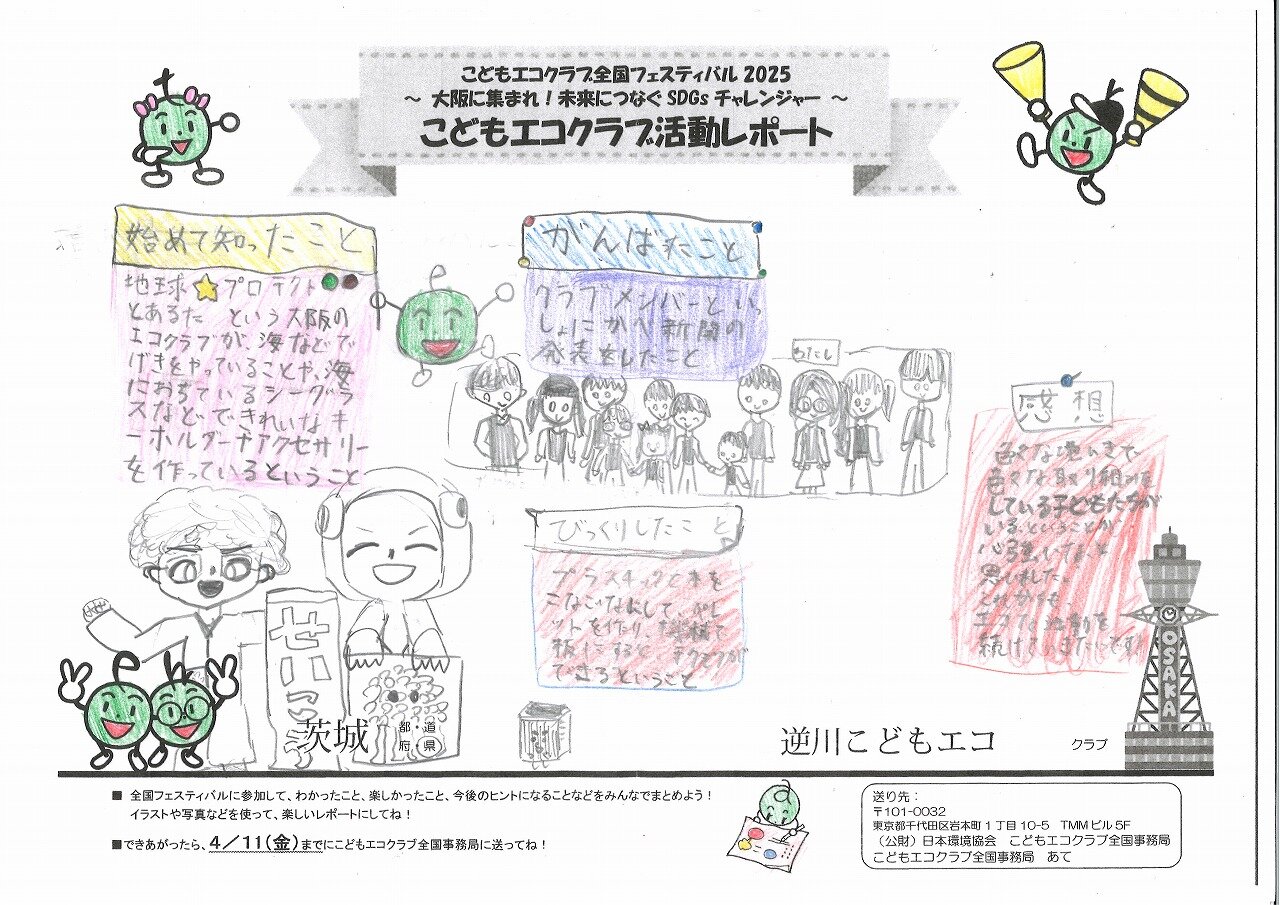 こどもエコクラブ全国フェスティバル 2025
～ 大阪に集まれ！未来につなぐ SDGs チャレンジャー ～
こどもエコクラブ活動レポート
始めて知ったこと
地球☆プロテクト
とあるた という大阪の
エコクラブが、海などで
げきをやっていることや、海
におちているシーグラ
スなどできれいなキ
ーホルダーやアクセサリー
を作っているということ
がんばたこと
クラブメンバーといっ
しょにかべ新聞の
発表をしたこと
わたし
感想
色々な地いきで
色々な取り組みを
している子どもたちが
いるということが
心強いなと
思いました。
これからも
エコな活動を
続けていきたいです!
びっくりしたこと
プラスチックと木を
こなごなにして、ペレ
ットを作り、機械で
板にすると デスクが
できるということ
せいこう
茨城
都・道
府・県
逆川こどもエコ
クラブ
OSAKA
■ 全国フェスティバルに参加して、わかったこと、楽しかったこと、今後のヒントになることなどをみんなでまとめよう！
イラストや写真などを使って、楽しいレポートにしてね！
■できあがったら、4／11（金）までにこどもエコクラブ全国事務局に送ってね！
送り先：
〒101-0032
東京都千代田区岩本町１丁目10-5 TMMビル5F
（公財）日本環境協会 こどもエコクラブ全国事務局
こどもエコクラブ全国事務局 あて